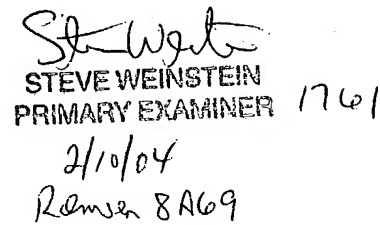 Steve Weinstein
STEVE WEINSTEIN
PRIMARY EXAMINER 1761
2/10/04
Remsen 8A69